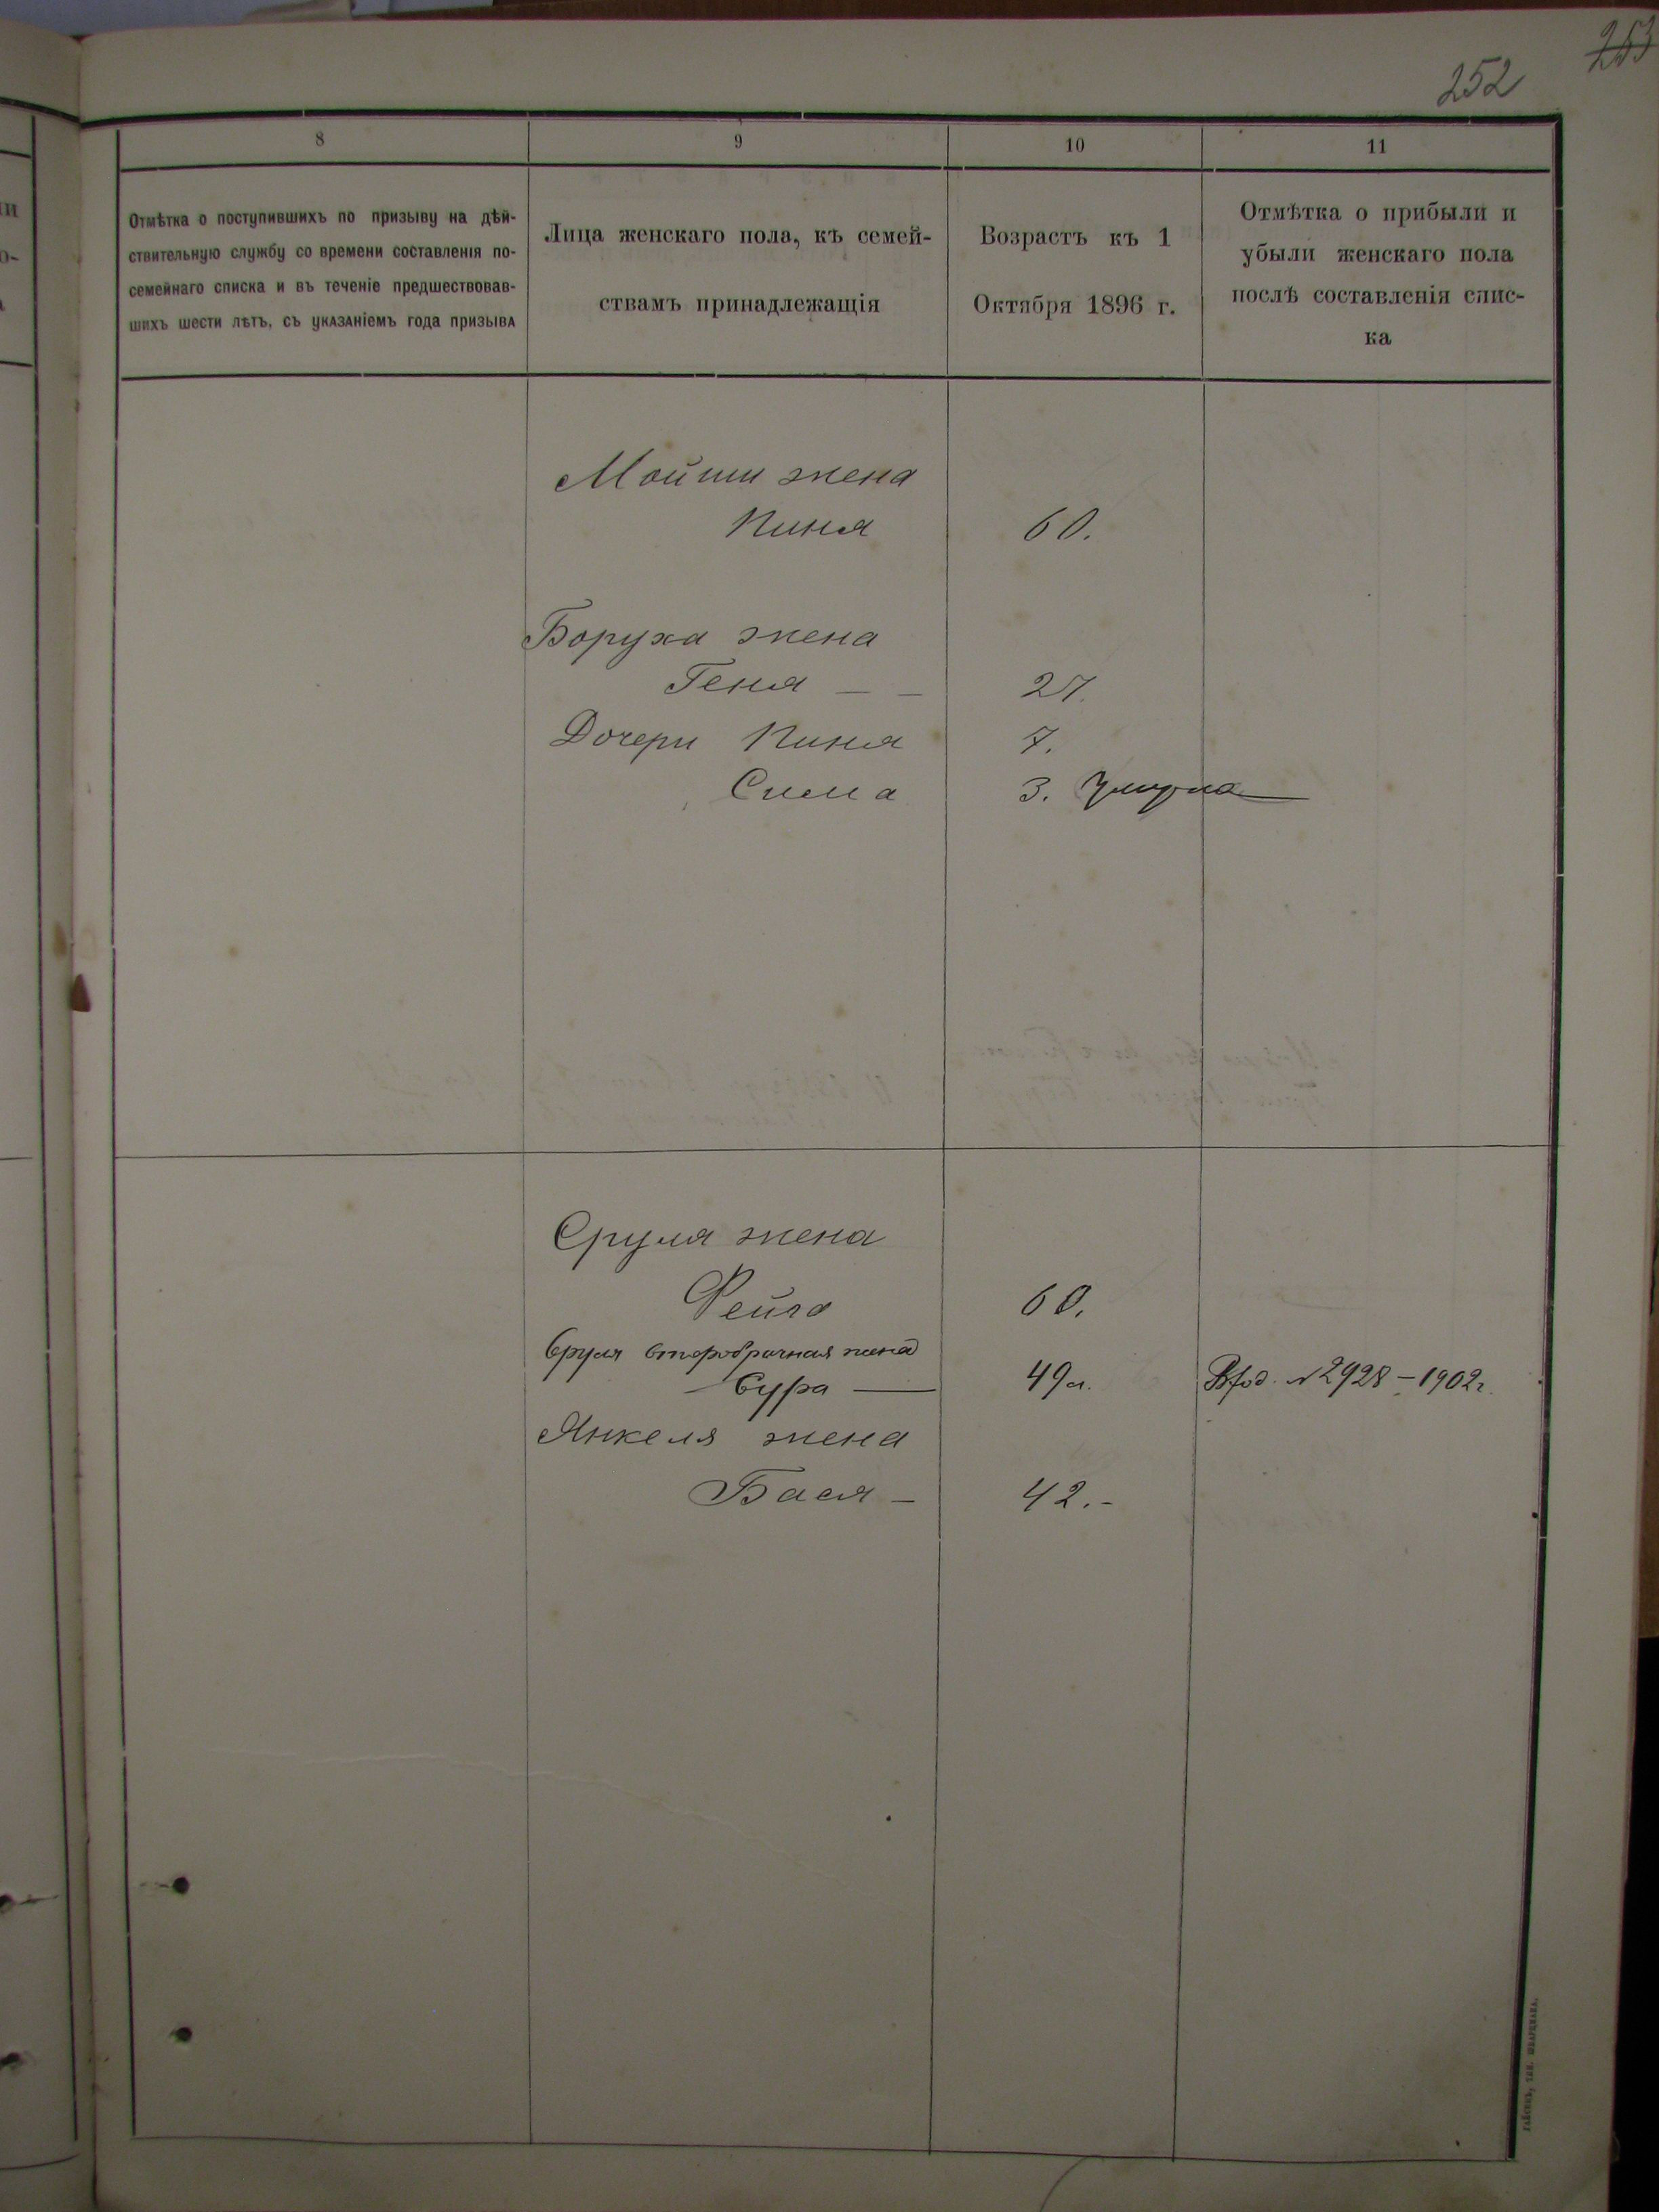 253
252
8
9
10
11
Отмѣтка о поступившихъ по призыву на дѣй-
ствительную службу со времени составленія по-
семейнаго списка и въ теченіе предшествовав-
шихъ шести лѣтъ, съ указаніемъ года призыва
Лица женскаго пола, къ семей-
ствамъ принадлежащія
Возрастъ къ 1
Октября 1896 г.
Отмѣтка о прибыли и
убыли женскаго пола
послѣ составленія спис-
ка
Мойши жена
60.
Боруха жена
Геня — — 27.
Дочери 7.
Сима 3. Умерла
Сруля жена
Фейга 60.
Сруля второбрачная жена
Сура — 49 л. № 2928 – 1902 г.
Янкеля жена
Бася – 42. -
ГАЙСИНЪ, ТИП. ШВАРЦМАНА.